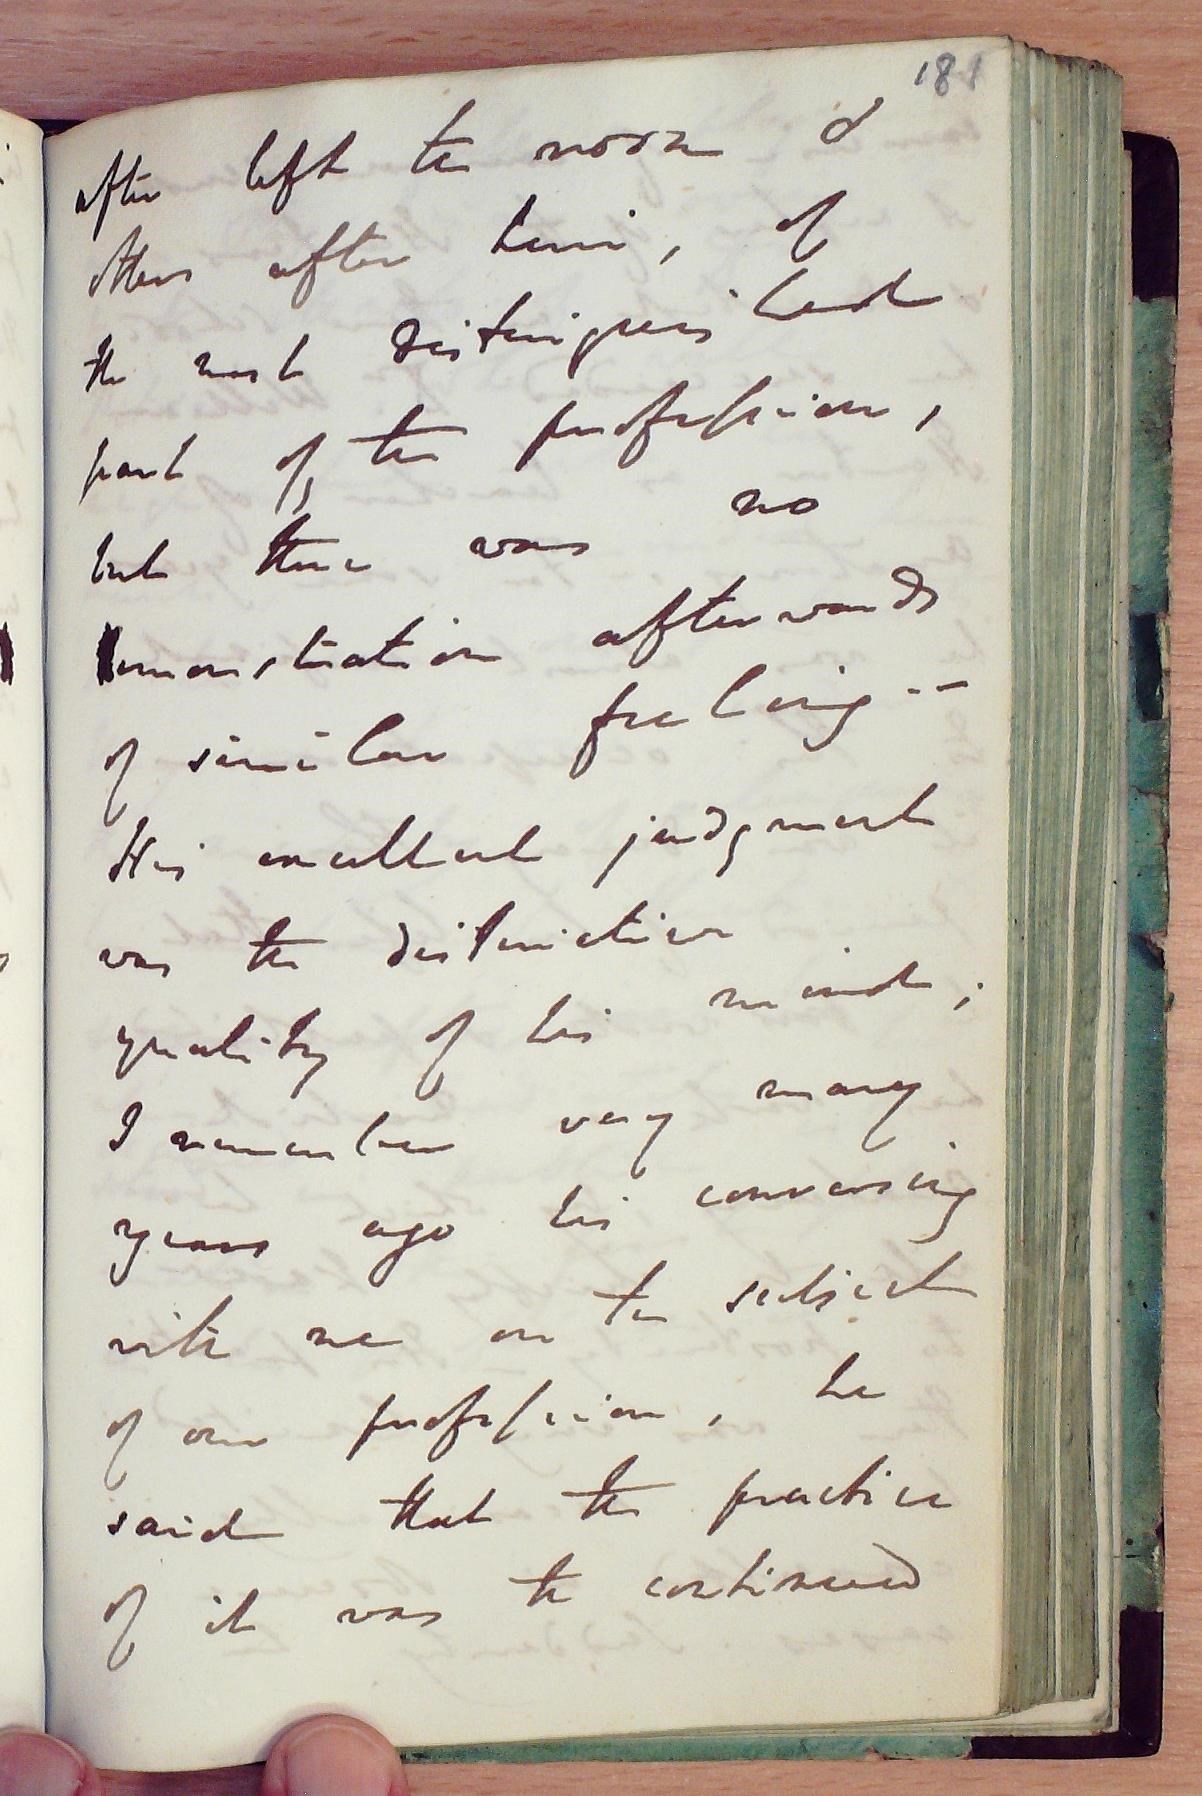 181
after left the room &
others after him, of
the most distinguished
part of the profession,
but there was no
demonstration afterwards
of similar feeling --
His excellent judgment
was the distinctive
quality of his mind;
I remember very many
years ago his conversing
with me on the subject
of our profession, he
said that the practice
of it was the continued